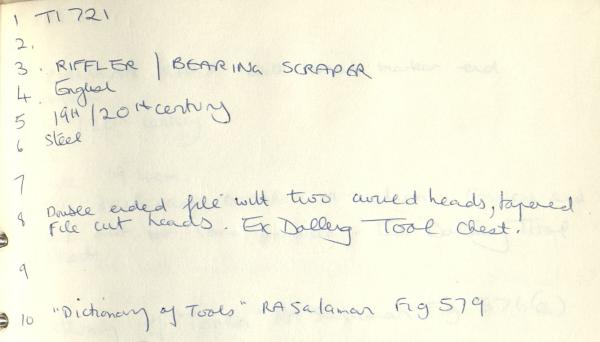 1 TI 721
2.
3. RIFFLER / BEARING SCRAPER
4. English
5 19th/20th century
6 Steel
7
8 Double ended file with two curved heads, tapered
File cut heads. Ex Dolley Tool Chest.
9
10 "Dictionary of Tools" RA Salaman Fig 579